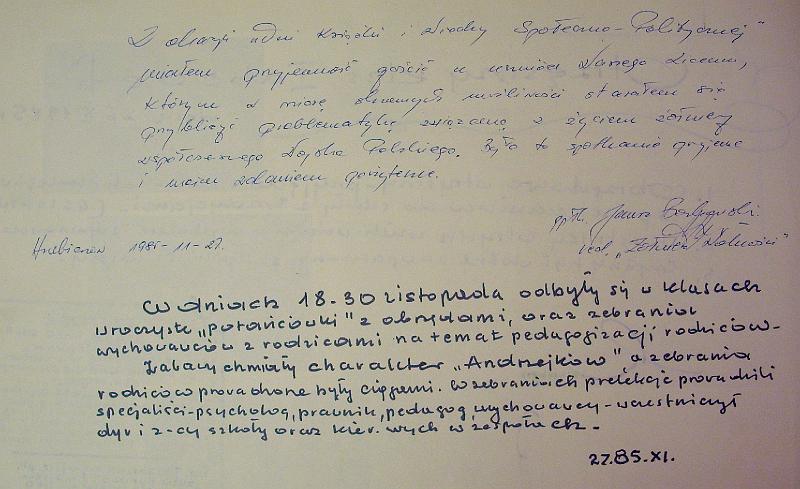 Z okazji "Dni Książki i Wiedzy Społeczno-Politycznej"
miałem przyjemność gościć u uczniów Waszego Liceum,
którym w miarę skromnych możliwości starałem się
przybliżyć problematykę związaną z życiem żołnierzy
współczesnego Wojska Polskiego. Było to spotkanie przyjemne
i moim zdaniem pożyteczne.
ppłk. Janusz
Hrubieszów 1985-11-27. red. "Żołnierz Wolności"
W dniach 18-30 listopada odbyły się w klasach
uroczyste "potańcówki" z obrzędami, oraz zebrania
wychowawców z rodzicami na temat pedagogizacji rodziców.-
Zabawy miały charakter "Andrzejków", a zebrania
rodziców prowadzone były ciągami. W zebraniach prelekcje prowadzili
specjaliści-psycholog, prawnik, pedagog, wychowawcy-uczestniczył
dyr i z-cy szkoły oraz kier. wych w zespołach.-
27.85.XI.